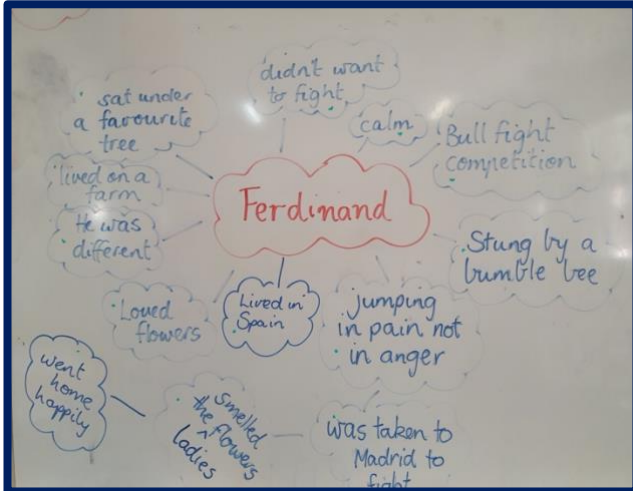 didn't want
to fight
sat under
a favourite
tree
calm
Bull fight
competition
lived on a
farm
Ferdinand
He was
different
Stung by a
bumble bee
Loved
flowers
Lived in
Spain
jumping
in pain not
in anger
went
home
happily
smelled
the ^ flowers
ladies
was taken to
Madrid to
fight